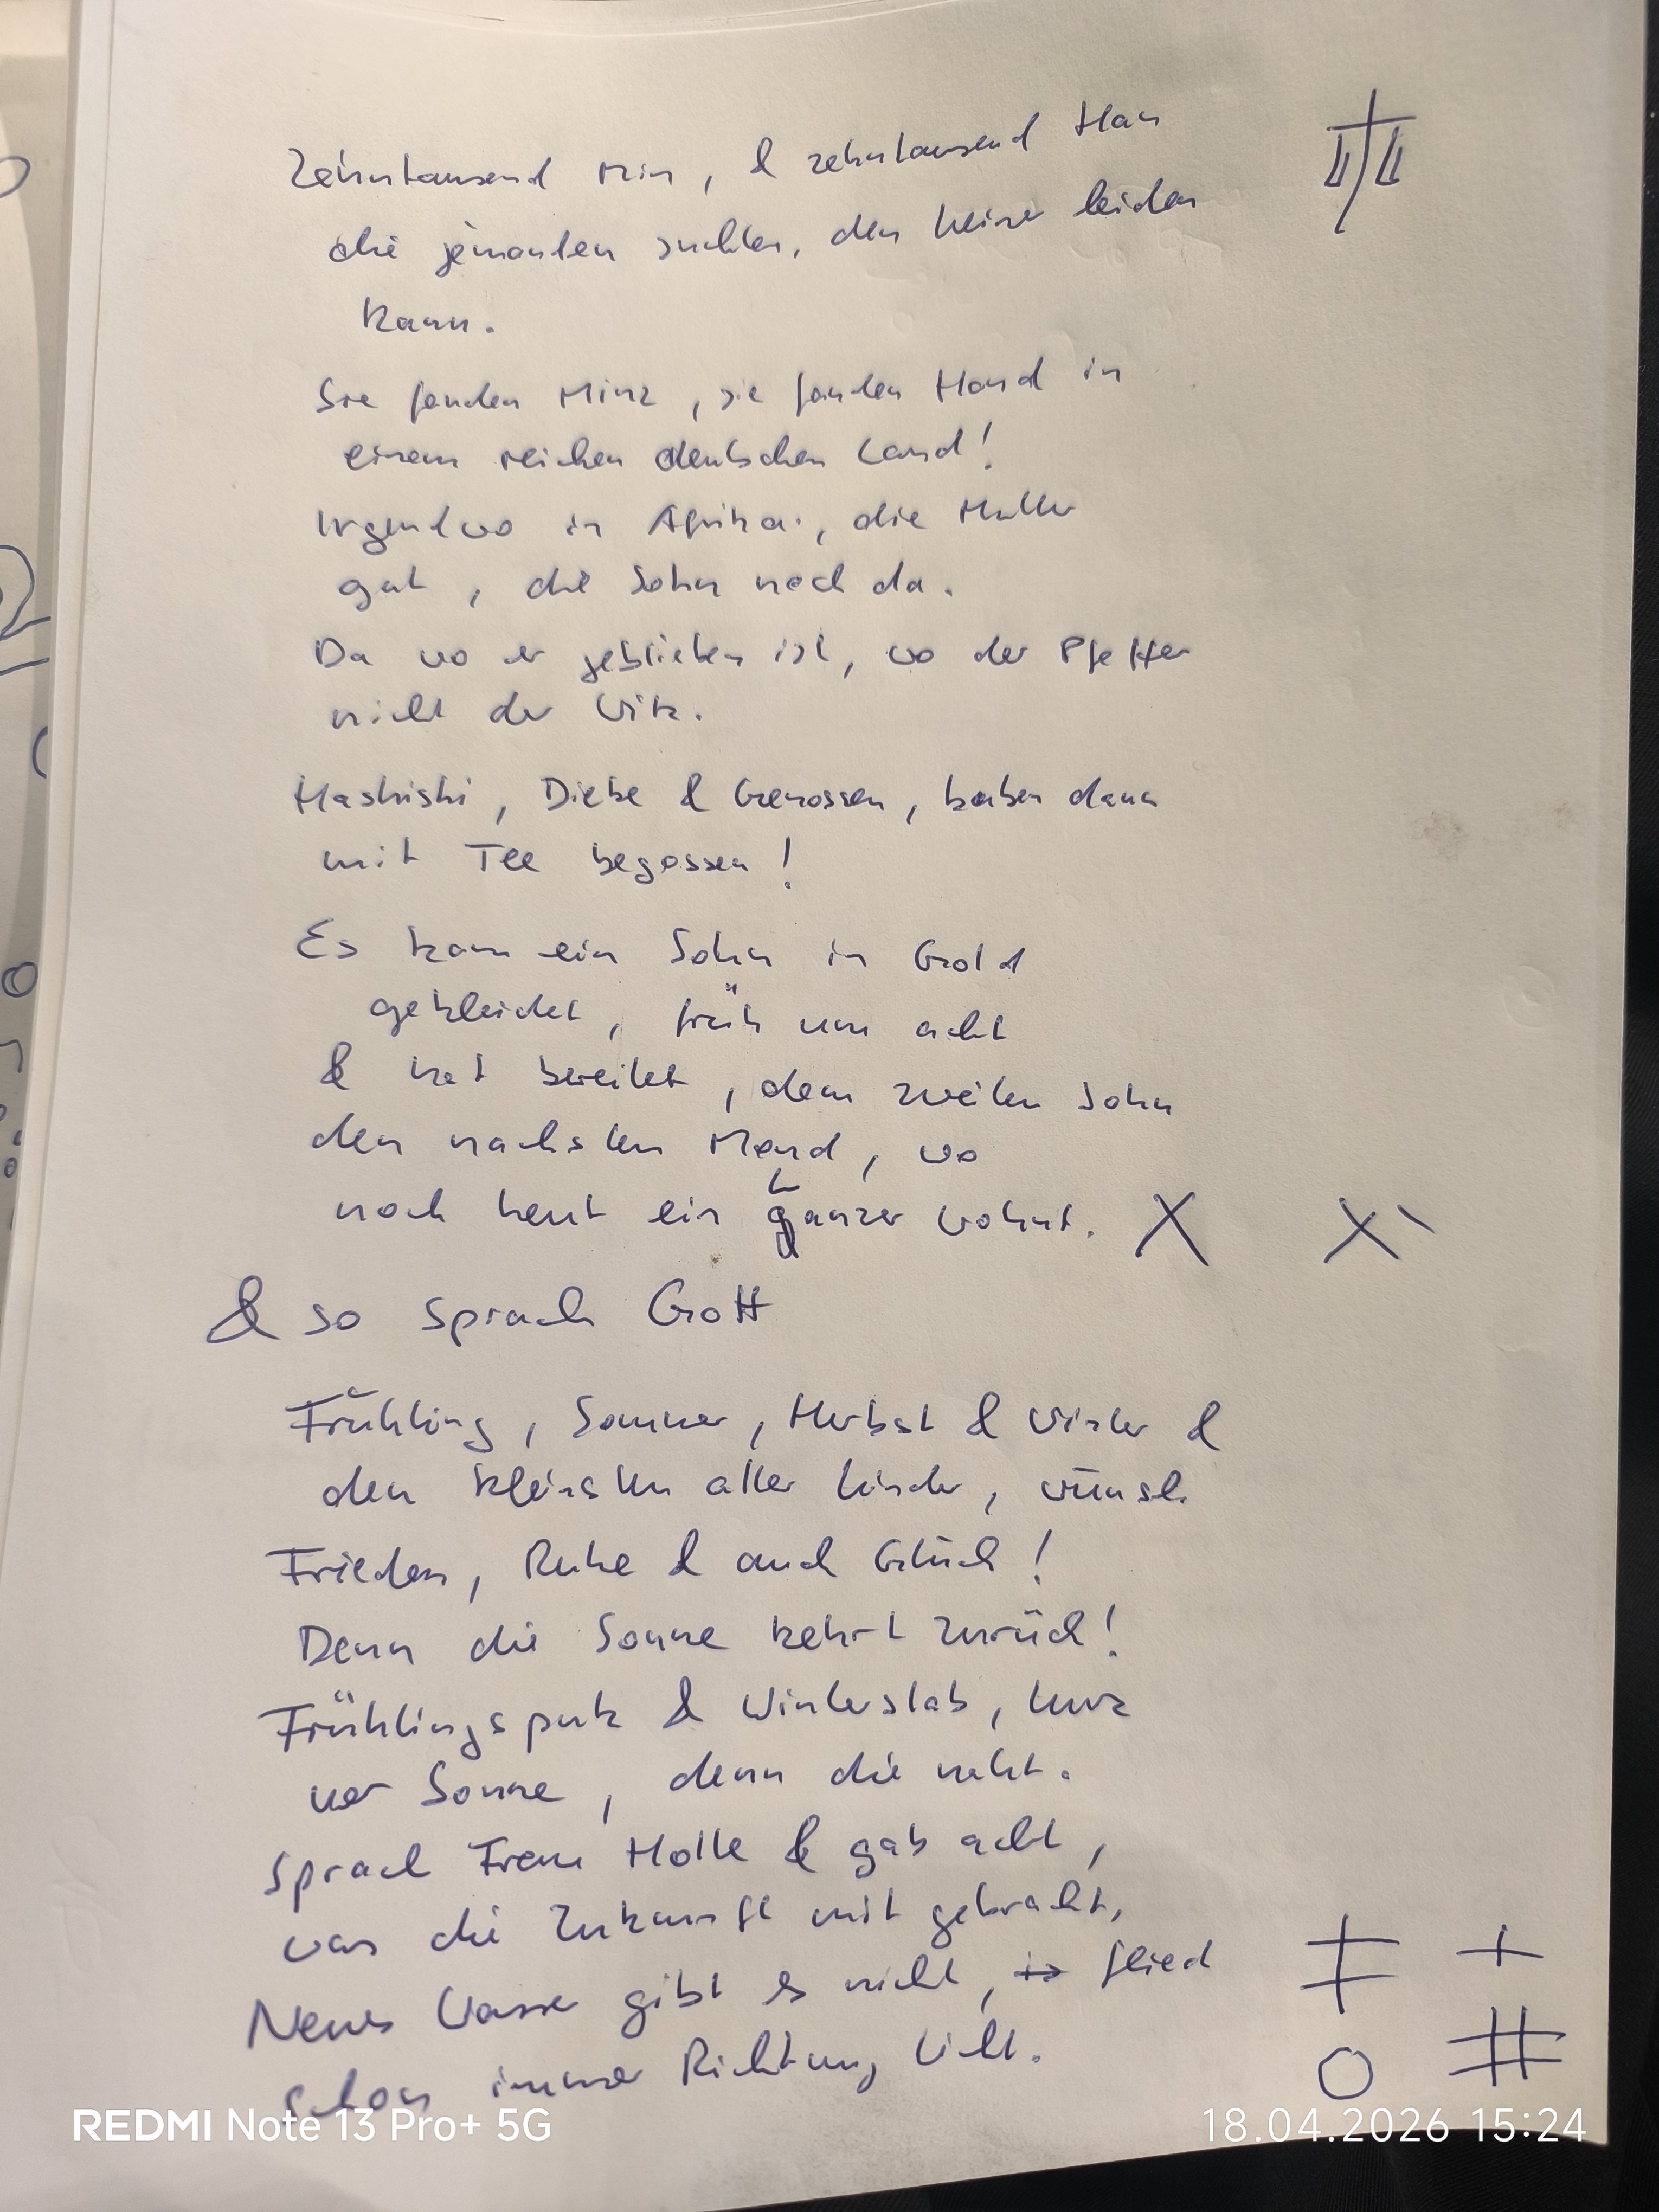 Zehntausend Min, & zehntausend Man
die jemanden suchten, den keiner leiden
kann.
Sie fanden Minz, sie fanden Mond in
einem reichen deutschen Land!
Irgendwo in Afrika, die Mutter
gut, die Sohn noch da.
Da wo er geblieben ist, wo der Pfeffer
nicht der Witz.
Hashishi, Diebe & Genossen, haben dann
mit Tee begossen!
Es kam ein Sohn in Gold
gekleidet, früh um acht
& hat bereitet, dem zweiten Sohn
den nachsten Mond, wo
noch heut ein ganzer wohnt. X X
& so sprach Gott
Frühling, Sommer, Herbst & Winter &
den kleinsten aller Kinder, wünsch
Frieden, Ruhe & auch Glück!
Denn die Sonne kehrt zurück!
Frühlingsputz & Winterstab, kurz
vor Sonne, denn die naht.
Sprach Frau Holle & gab acht,
was die Zukunft mit gebracht,
Neues Wasser gibt es nicht, flied
schon immer Richtung Licht.
REDMI Note 13 Pro+ 5G
18.04.2026 15:24